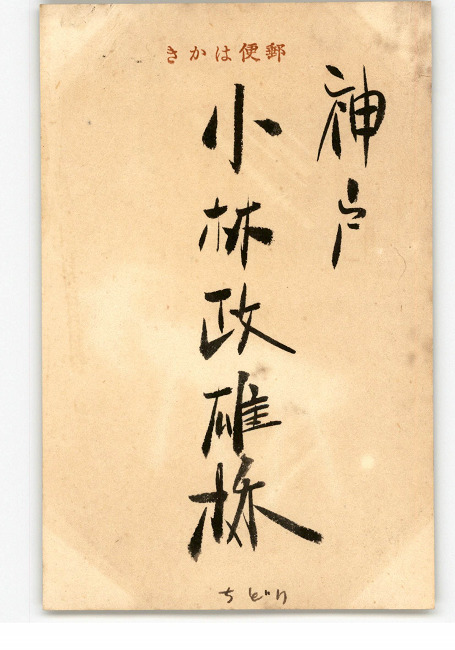 郵便はかき
神戸
小林政雄様
ちどり